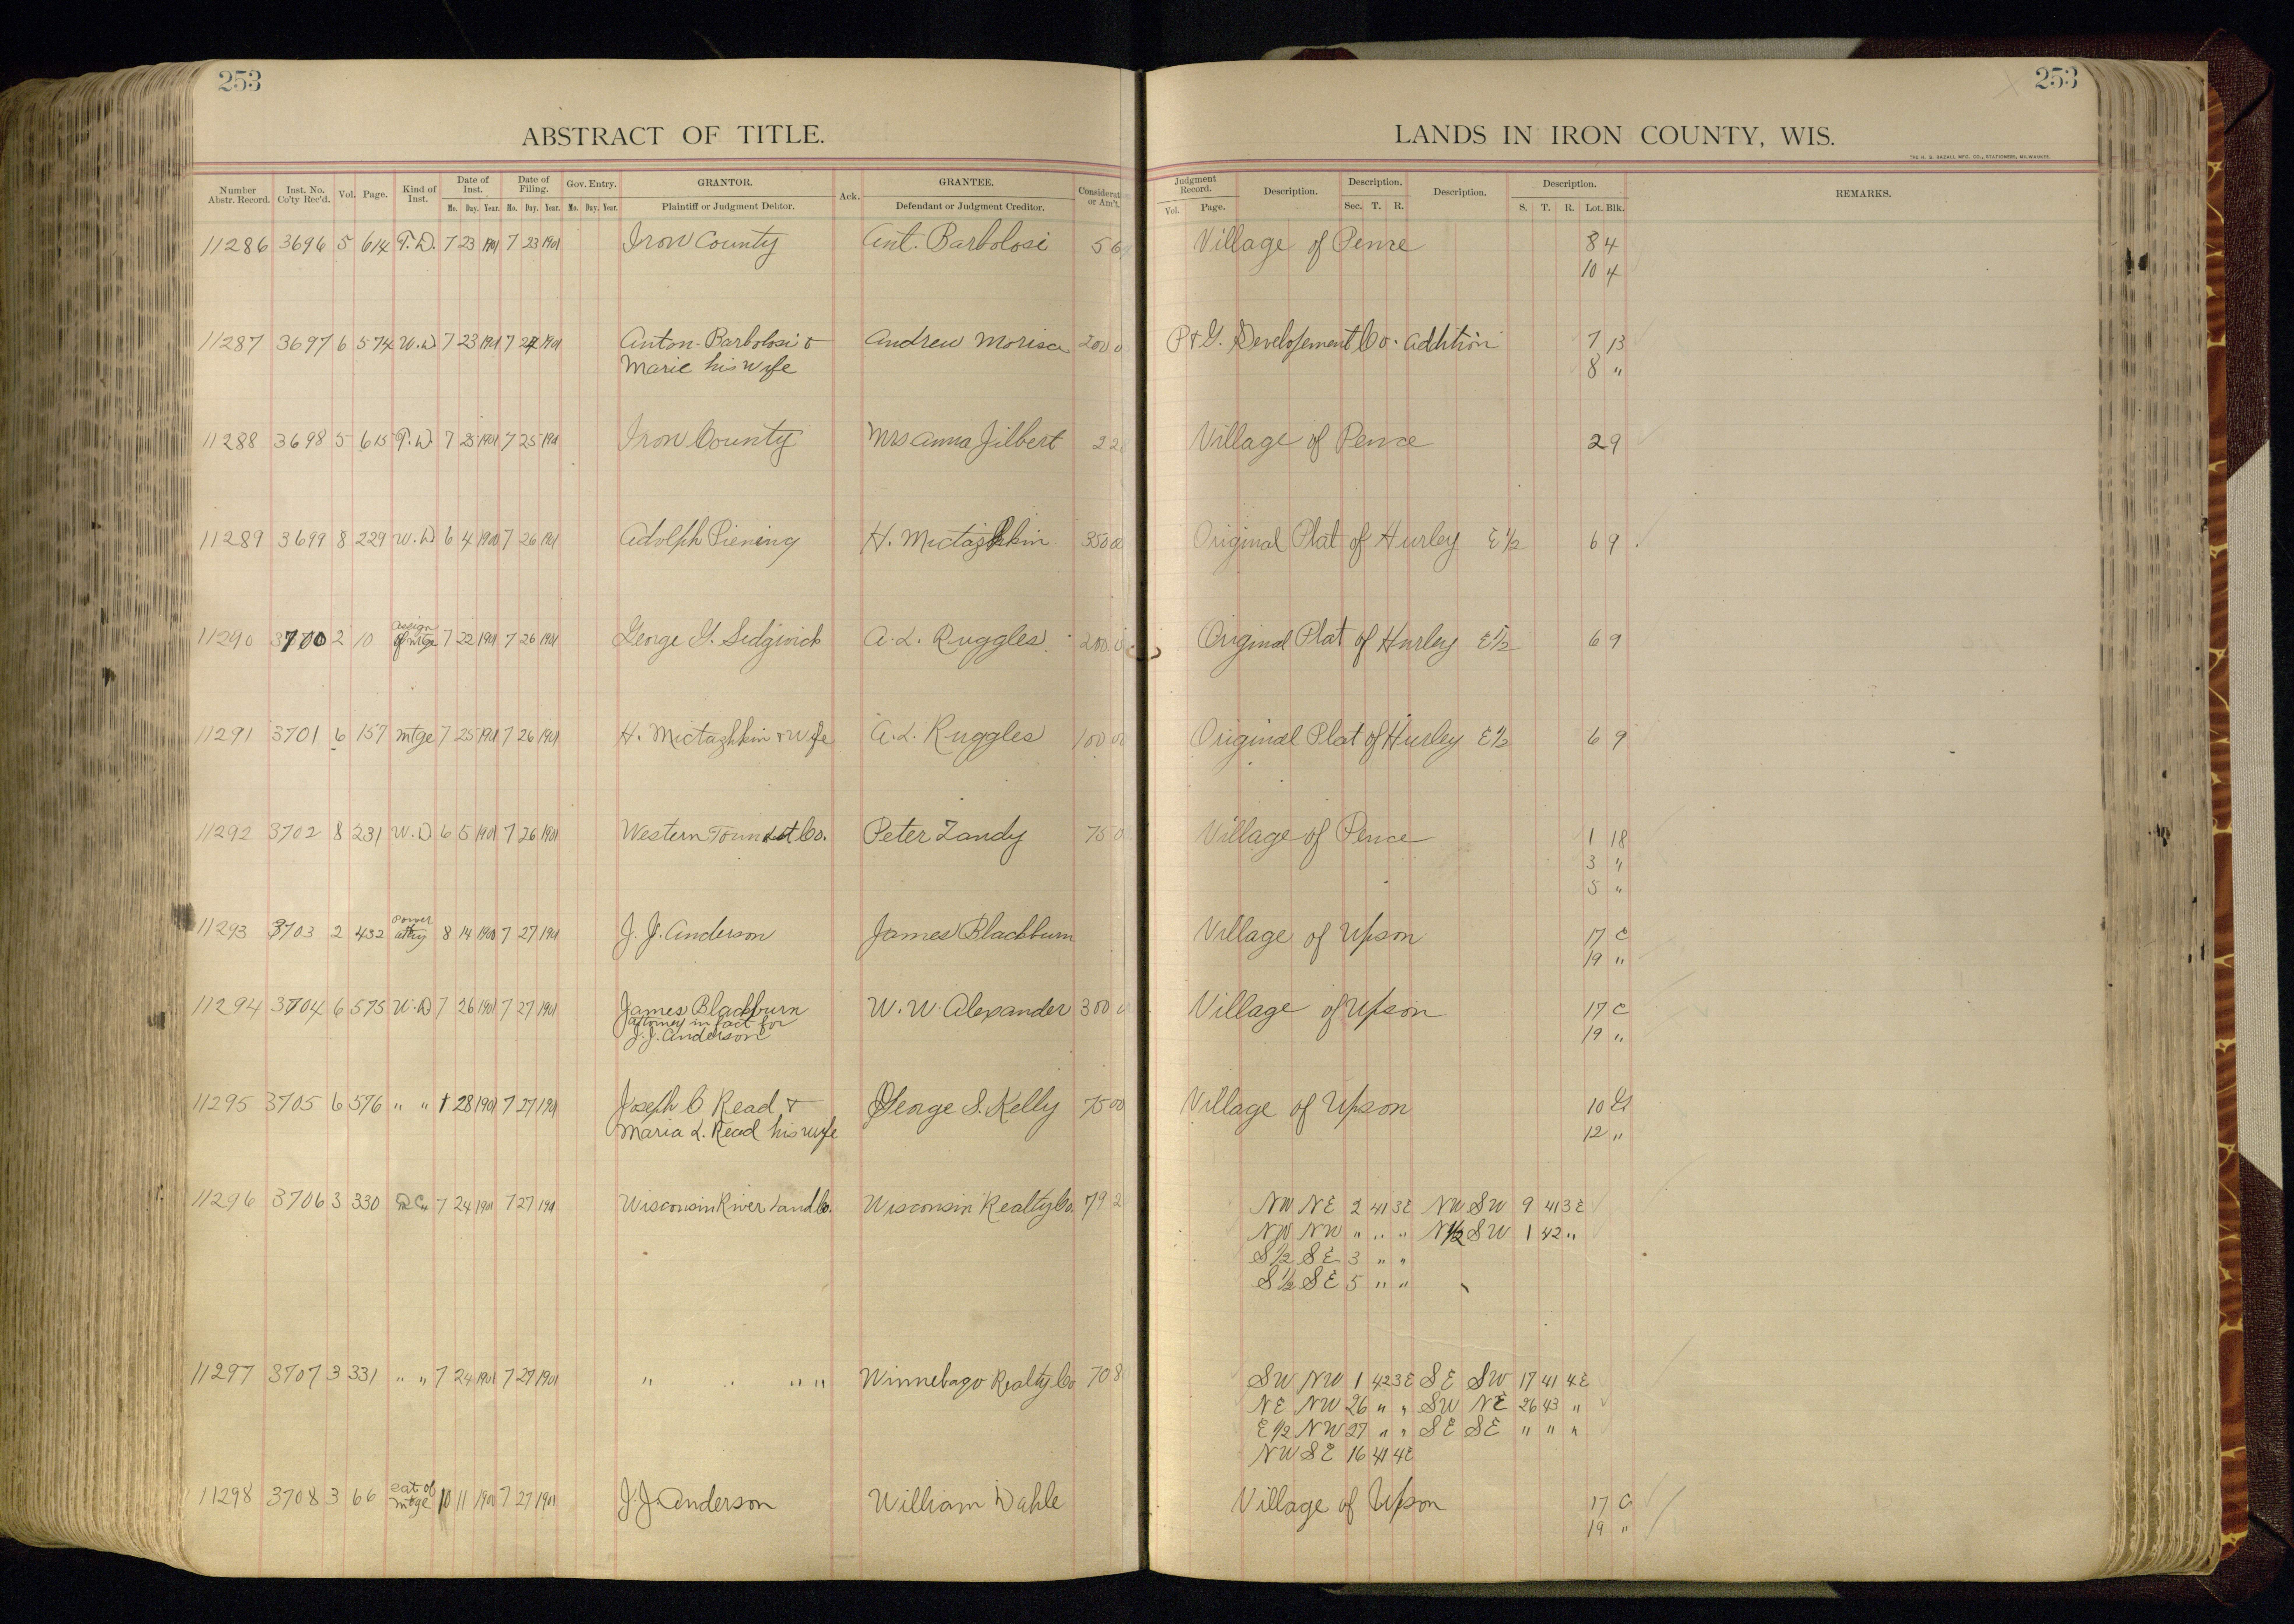 253
253
ABSTRACT OF TITLE.
LANDS IN IRON COUNTY, WIS.
THE H. G. RAZALL MFG. CO., STATIONERS, MILWAUKEE.
Number Abstr. Record. Inst. No. Co'ty Rec'd. Vol. Page. Kind of Inst. Date of Inst. Mo. Day. Year. Date of Filing. Mo. Day. Year. Gov. Entry. Mo. Day. Year. GRANTOR. Plaintiff or Judgment Debtor. Ack. GRANTEE. Defendant or Judgment Creditor. Considerat or Am't.
Judgment Record. Vol. Page. Description. Description. Sec. T. R. Description. Description. S. T. R. Lot. Blk. REMARKS.
11286 3696 5 614 T.D. 7 23 1901 7 23 1901 Iron County Ant. Barbolosi 5 69 Village of Pence 8 4
10 4
11287 3697 6 574 W.D 7 23 1901 7 24 1901 Anton Barbolosi & Andrew Morisce 200 0 P & G. Developement Co. Addition 7 13
Marie his wife 8 "
11288 3698 5 615 T.D. 7 25 1901 7 25 1901 Iron County Mrs Anna Jilbert 2 2 Village of Pence 2 9
11289 3699 8 229 W.D 6 4 1900 7 26 1901 Adolph Piening H. Mictazhkin 350 00 Original Plat of Hurley E 1/2 6 9
11290 3700 2 10 Assign of mtge 7 22 1901 7 26 1901 George G. Sedgwick A. L. Ruggles 200.0 Original Plat of Hurley E 1/2 6 9
11291 3701 6 157 mtge 7 25 1901 7 26 1901 H. Mictazhkin & Wife A. L. Ruggles 100 00 Original Plat of Hurley E 1/2 6 9
11292 3702 8 231 W.D 6 5 1901 7 26 1901 Western Town Lot Co. Peter Zandy 75 0 Village of Pence 1 18
3 "
5 "
11293 3703 2 432 Power atty 8 14 1900 7 27 1901 J. J. Anderson James Blackburn Village of Upson 17 C
19 "
11294 3704 6 575 W.D 7 26 1901 7 27 1901 James Blackburn W. W. Alexander 300 Village of Upson 17 C
attorney in fact for
J. J. Anderson 19 "
11295 3705 6 576 " " 28 1901 7 27 1901 Joseph C Read & George S. Kelly 75 00 Village of Upson 10
Maria L. Read his wife 12 "
11296 3706 3 330 7 24 1901 7 27 1901 Wisconsin River Land Co. Wisconsin Realty Co. 79 2 NW NE 2 41 3E NW SW 9 41 3E
NW NW " " " N 1/2 SW 1 42 "
S 1/2 SE 3 " "
S 1/2 SE 5 " "
11297 3707 3 331 " " 7 24 1901 7 27 1901 " " " " Winnebago Realty Co 708 SW NW 1 42 3E SE SW 17 41 4E
NE NW 26 " " SW NE 26 43 "
E 1/2 NW 27 " " SE SE " " "
NW SE 16 41 4E
11298 3708 3 66 sat of mtge 10 11 1900 7 27 1901 J. J. Anderson William Dahle Village of Upson 17 C
19 "